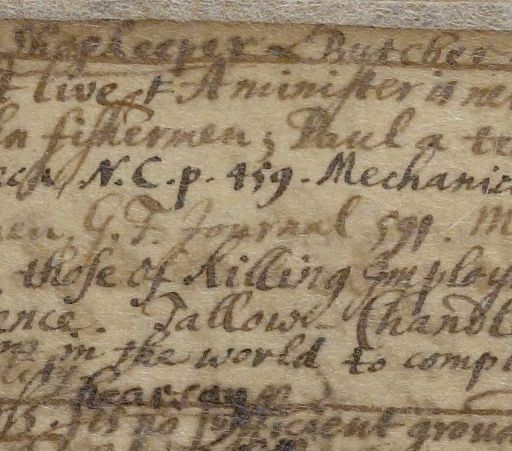 Shopkeeper & Butcher
live st A minister is ne
fishermen; Paul a te
N.C. p. 459. Mechanic
en, G.T. Journal 591. M
those of killing Employ
ence. Tallow-Chandl
in the world to compl
Hearsay
is no sufficient groun